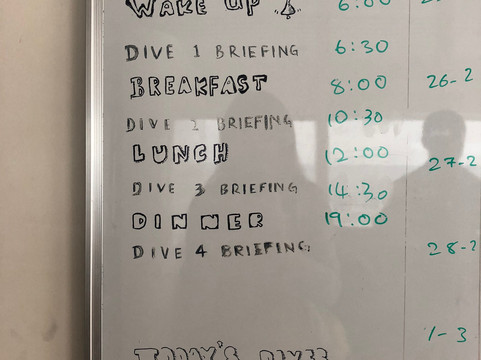 WAKE UP 6:00
DIVE 1 BRIEFING 6:30
BREAKFAST 8:00 26-2
DIVE 2 BRIEFING 10:30
LUNCH 12:00 27-2
DIVE 3 BRIEFING 14:30
DINNER 19:00
DIVE 4 BRIEFING: 28-2
1-3
TODAY'S DIVES